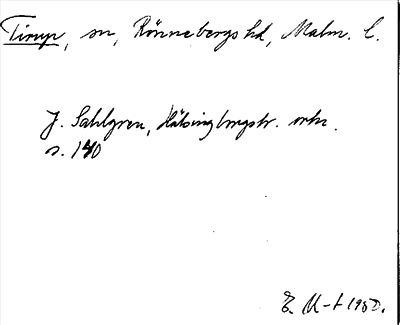 Tirup, sn, Rönnebergs hd, Malm. l.
J. Sahlgren, Hälsingborgstr. ortn.
s. 140
E. M-t 1950.